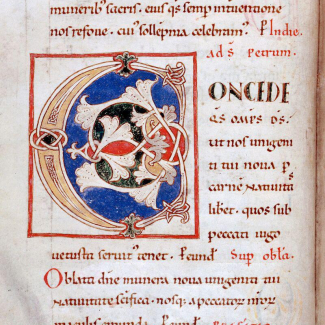 munerib; sacris. eius qs semp intercessione
nos refove. cui' sollepnia celebram'. P In die
ad S Petrum.
CONCEDE
qs omps ds.
ut nos unigeni
ti tui nova p
carnē nativita
libet. quos sub
peccati iugo
vetusta servit' tenet. P eund Sup obla.
Oblata dñe munera nova unigeniti tui
nativitate scifica. nosq; a peccator
maculis emunda. P eund